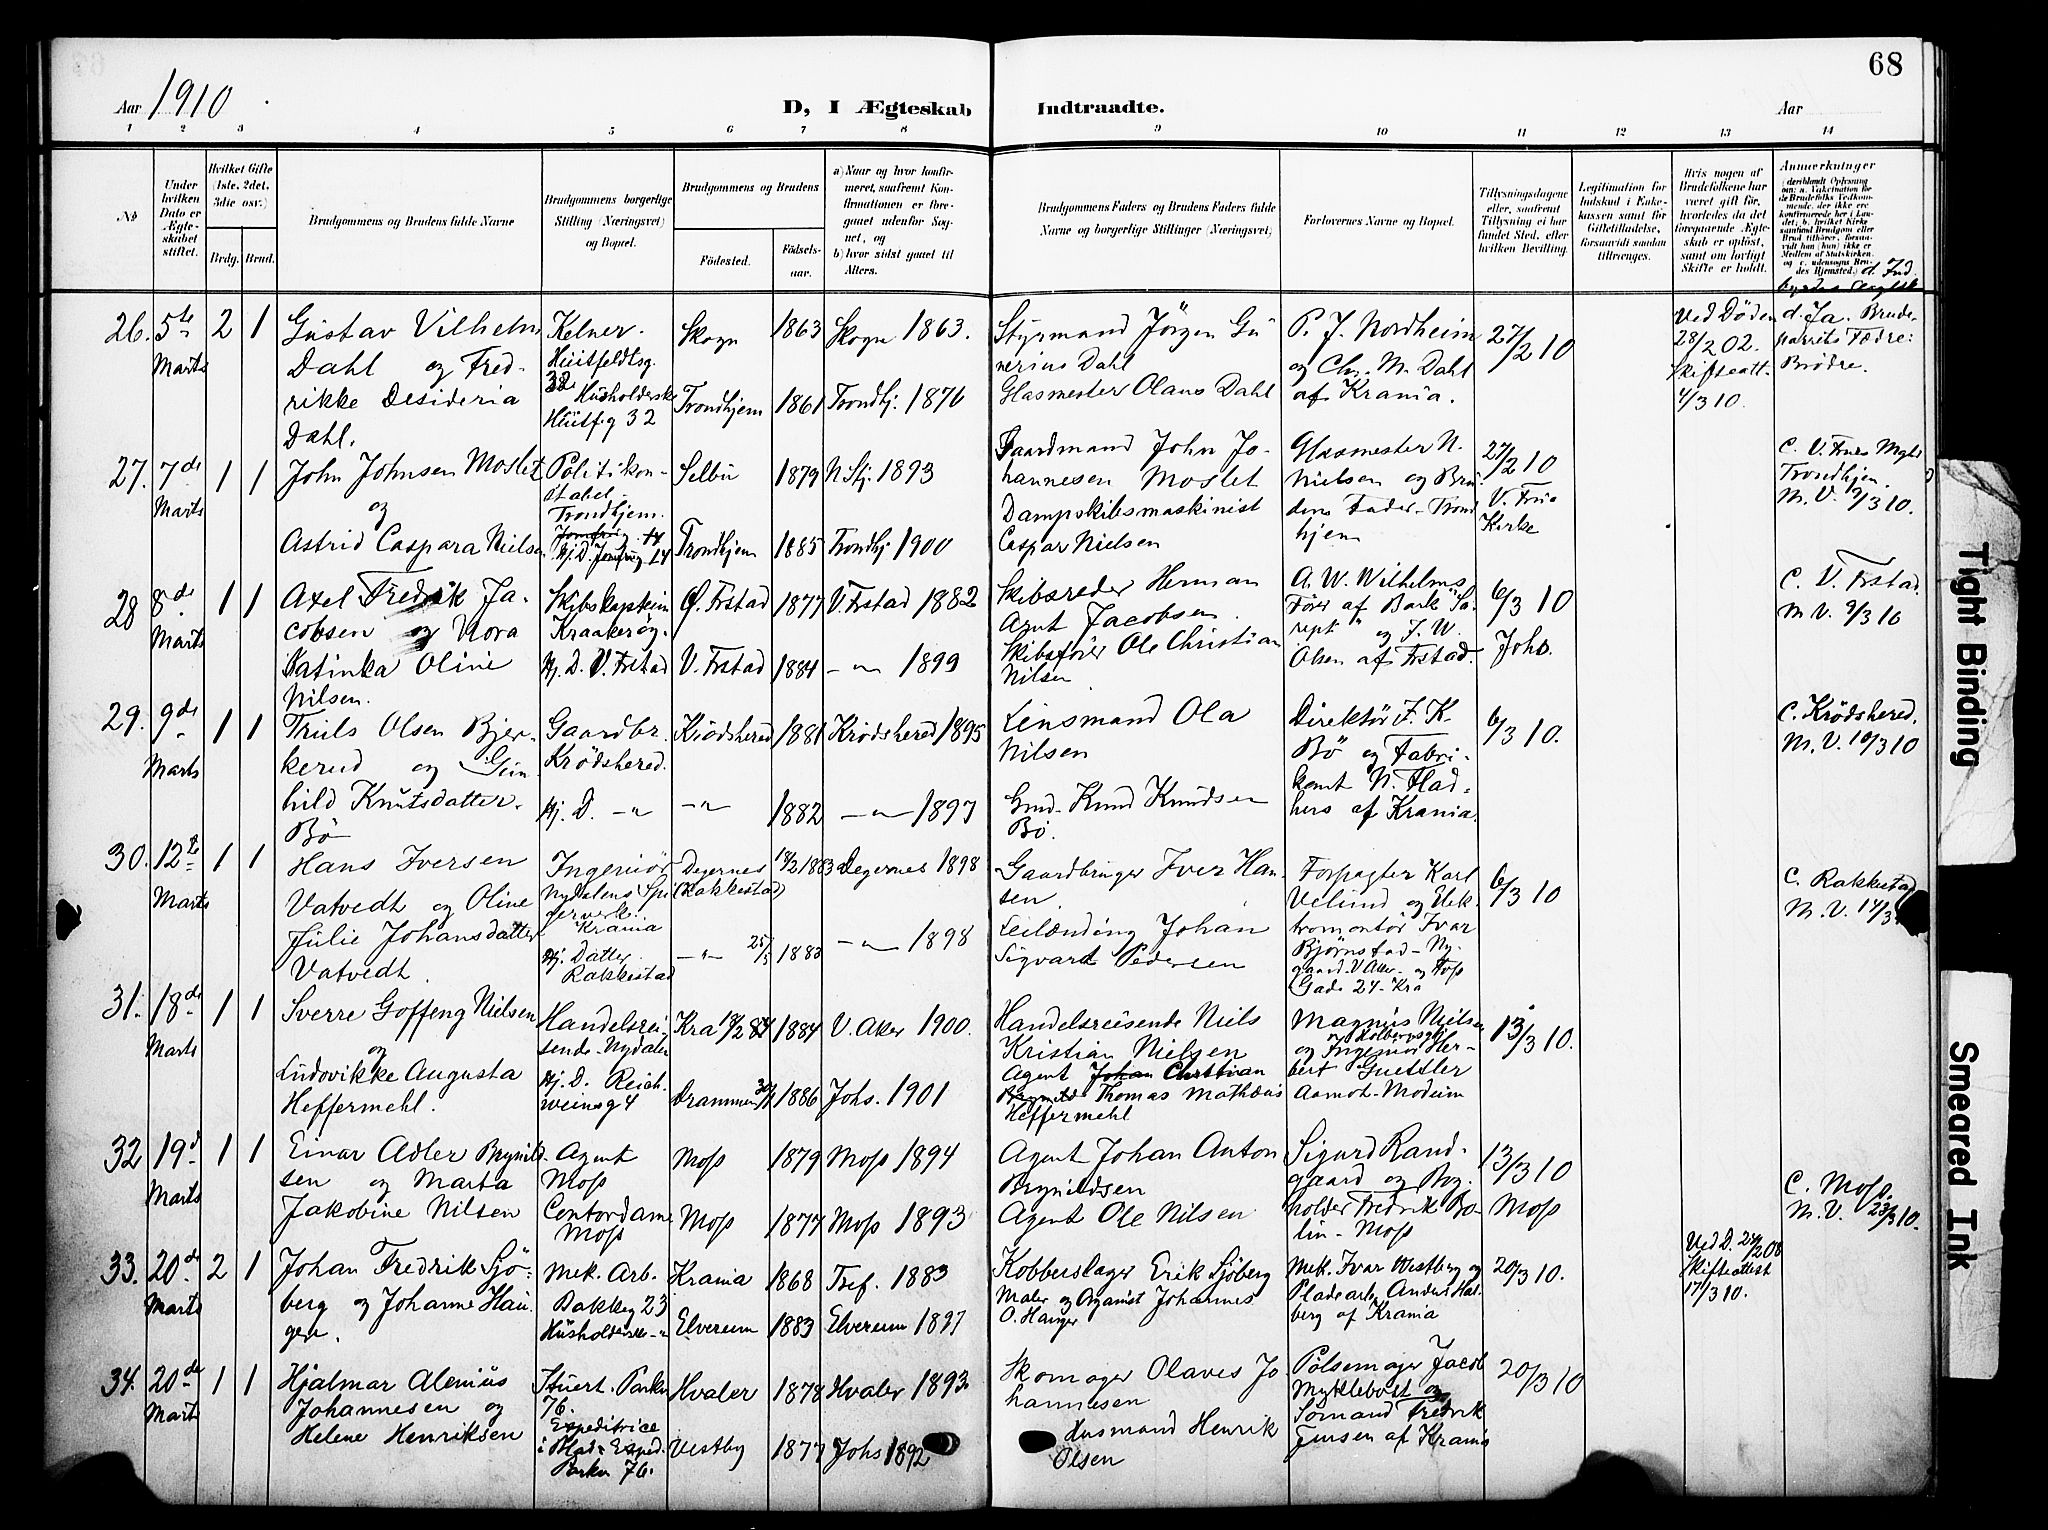 68
Aar 1910
D, I Ægteskab
Indtraadte.
Aar
1 2 3 4 5 6 7 8 9 10 11 12 13 14
No
Under hvilken Dato er Ægteskabet stiftet.
Hvilket Gifte (1ste, 2det, 3die osv.)
Brdg. Brud.
Brudgommens og Brudens fulde Navne
Brudgommens borgerlige Stilling (Næringsvei) og Bopæl.
Brudgommens og Brudens
Födested.
Födselsaar.
a) Naar og hvor konfirmeret, saafremt Konfirmationen er foregaaet udenfor Sognet, og
b) hvor sidst gaaet til Alters.
Brudgommens Faders og Brudens Faders fulde Navne og borgerlige Stillinger (Næringsvei)
Forlovernes Navne og Bopæl.
Tillysningsdagene eller, saafremt Tillysning ei har fundet Sted, efter hvilken Bevilling.
Legitimation for Indskud i Enkekassen samt for Giftetilladelse, forsaavidt saadan tiltrænges.
Hvis nogen af Brudefolkene har været gift før, hvorledes da det foregaaende Ægteskab er oplöst, samt om lovligt Skifte er holdt.
Anmerkninger
26. 5te Marts 2 1
Gustav Vilhelm
Dahl og Fred-
rikke Desideria
Dahl.
Kelner.
Huitfeldtsg.
32
Husholderske
Huitf.g 32
Skogn 1863 Skogn 1863.
Trondhjem 1861 Trondhj. 1876
Styrmand Jörgen Gu
nerius Dahl
Glasmester Olaus Dahl
P. J. Nordheim
og Chr. M. Dahl
af Krania.
27/2 10
Ved Döden
28/2 02.
Skifteatt.
4/3 10.
d. Ja. Brude-
parrets Fædre:
Brödre.
27. 7de Marts 1 1
John Johnsen Moslet
og
Astrid Caspara Nielsen
Politikon-
stabel
Trondhjem.
Hj. D. Jomfrug 14
Selbu 1879 N Stj. 1893
Trondhjem 1885 Trondhj 1900
Gaardmand John Jo-
hannesen Moslet
Dampskibsmaskinist
Caspar Nielsen
Glasmester N.
Nielsen og Bru-
dens Fader - Trond
hjem
27/2 10
V. Frue
Kirke
C. V. Frues Mgh.
Trondhjem.
M. V. 9/3 10.
28 8de Marts 1 1
Axel Fredrik Ja-
cobsen og Nora
Katinka Oline
Nilsen.
Skibskaptein
Kraakeröy.
Hj. D. V. Frstad
Ø. Frstad 1877 V. Frstad 1882
V. Frstad 1884 -"- 1899
Skibsreder Herman
Arnt Jacobsen
Skibsförer Ole Christian
Nilsen
A. W. Wilhelms
Förer af Bark "Sa-
rept" og J. W.
Olsen af Frstad.
6/3 10
Johs.
C. V. Frstad.
M. V. 9/3 10
29. 9de Marts 1 1
Truls Olsen Bjer-
kerud og Gun-
hild Knutsdatter
Bö
Gaardbr.
Krödshered.
Hj. D. -"-
Krödshered 1881 Krödshered 1895
-"- 1882 -"- 1897
Lensmand Ola
Nilsen
Gmd. Knud Knudsen
Bö.
Direktör F. K.
Bö og Fabri-
kant N. Flad-
hers af Krania.
6/3 10.
C. Krödshered.
M. V. 10/3 10
30. 12te Marts 1 1
Hans Iversen
Vatvedt og Oline
Julie Johansdatter
Vatvedt.
Ingeniör
Nydalens Spi
gerverk.
Krania
Hj. Datter.
Rakkestad
Degernes
(Rakkestad)
18/2 1883 Degernes 1898
-"- 25/5 1883 -"- 1898
Gaardbruger Iver Han-
sen.
Leilænding Johan
Sigvart Pedersen
Forpagter Karl
Velund og Elek-
tromontör Ivar
Björnstad - Ny-
gaard V. Aker og Foss
Gade 24 - Kra
6/3 10
C. Rakkestad
M. V. 14/3
31. 18de Marts 1 1
Sverre Goffeng Nielsen
og
Ludovikke Augusta
Heffermehl.
Handelsrei-
sende - Nydalen
Hj. D. Reich-
weinsg 4
Kra 18/2 84 1884 V. Aker 1900.
Drammen 30/ 1886 Johs. 1901
Handelsreisende Niels
Kristian Nielsen
Agent Johan Christian
Thomas Mathæus
Heffermehl
Magnus Nielsen
og Ingeniör Her-
bert Guettler
Aamot - Modum
13/3 10.
32 19d Marts 1 1
Einar Adler Brynild-
sen og Marta
Jakobine Nilsen
Agent
Moss
Contordame
Moss
Moss 1879 Moss 1894
Moss 1877 Moss 1893
Agent Johan Anton
Brynildsen
Agent Ole Nilsen
Sigurd Rand-
gaard og Bog-
holder Fredrik Bo-
lin - Moss
13/3 10
Moss
C. Moss.
M. V. 23/3 10.
33. 20de Marts 2 1
Johan Fredrik Sjö-
berg og Johanne Hau-
gen.
Mek. Arb.
Bakkeg 23
Husholderske -"-
Krania 1868 Tref. 1883
Elverum 1883 Elverum 1897
Kobberslager Erik Sjöberg
Maler og Organist Johannes
O. Haugen
Mek. Ivar Westberg og
Pladearb. Anders Hal-
berg af Krania
20/3 10.
Ved D. 24/2 08
Skifteattest
17/3 10.
34. 20de Marts 1 1
Hjalmar Alenius
Johannesen og
Helene Henriksen
Stuert. Parkv
76.
Expeditrice
i Mad. Exped.
Parkv 76.
Hvaler 1878 Hvaler 1893
Vestby 1877 Johs 1892
Skomager Olaves Jo
hannesen
Husmand Henrik
Olsen
Pölsemager Jacob
Myklebost og
Sömand Fredrik
Jensen af Krania
20/3 10
Tight Binding
Smeared Ink